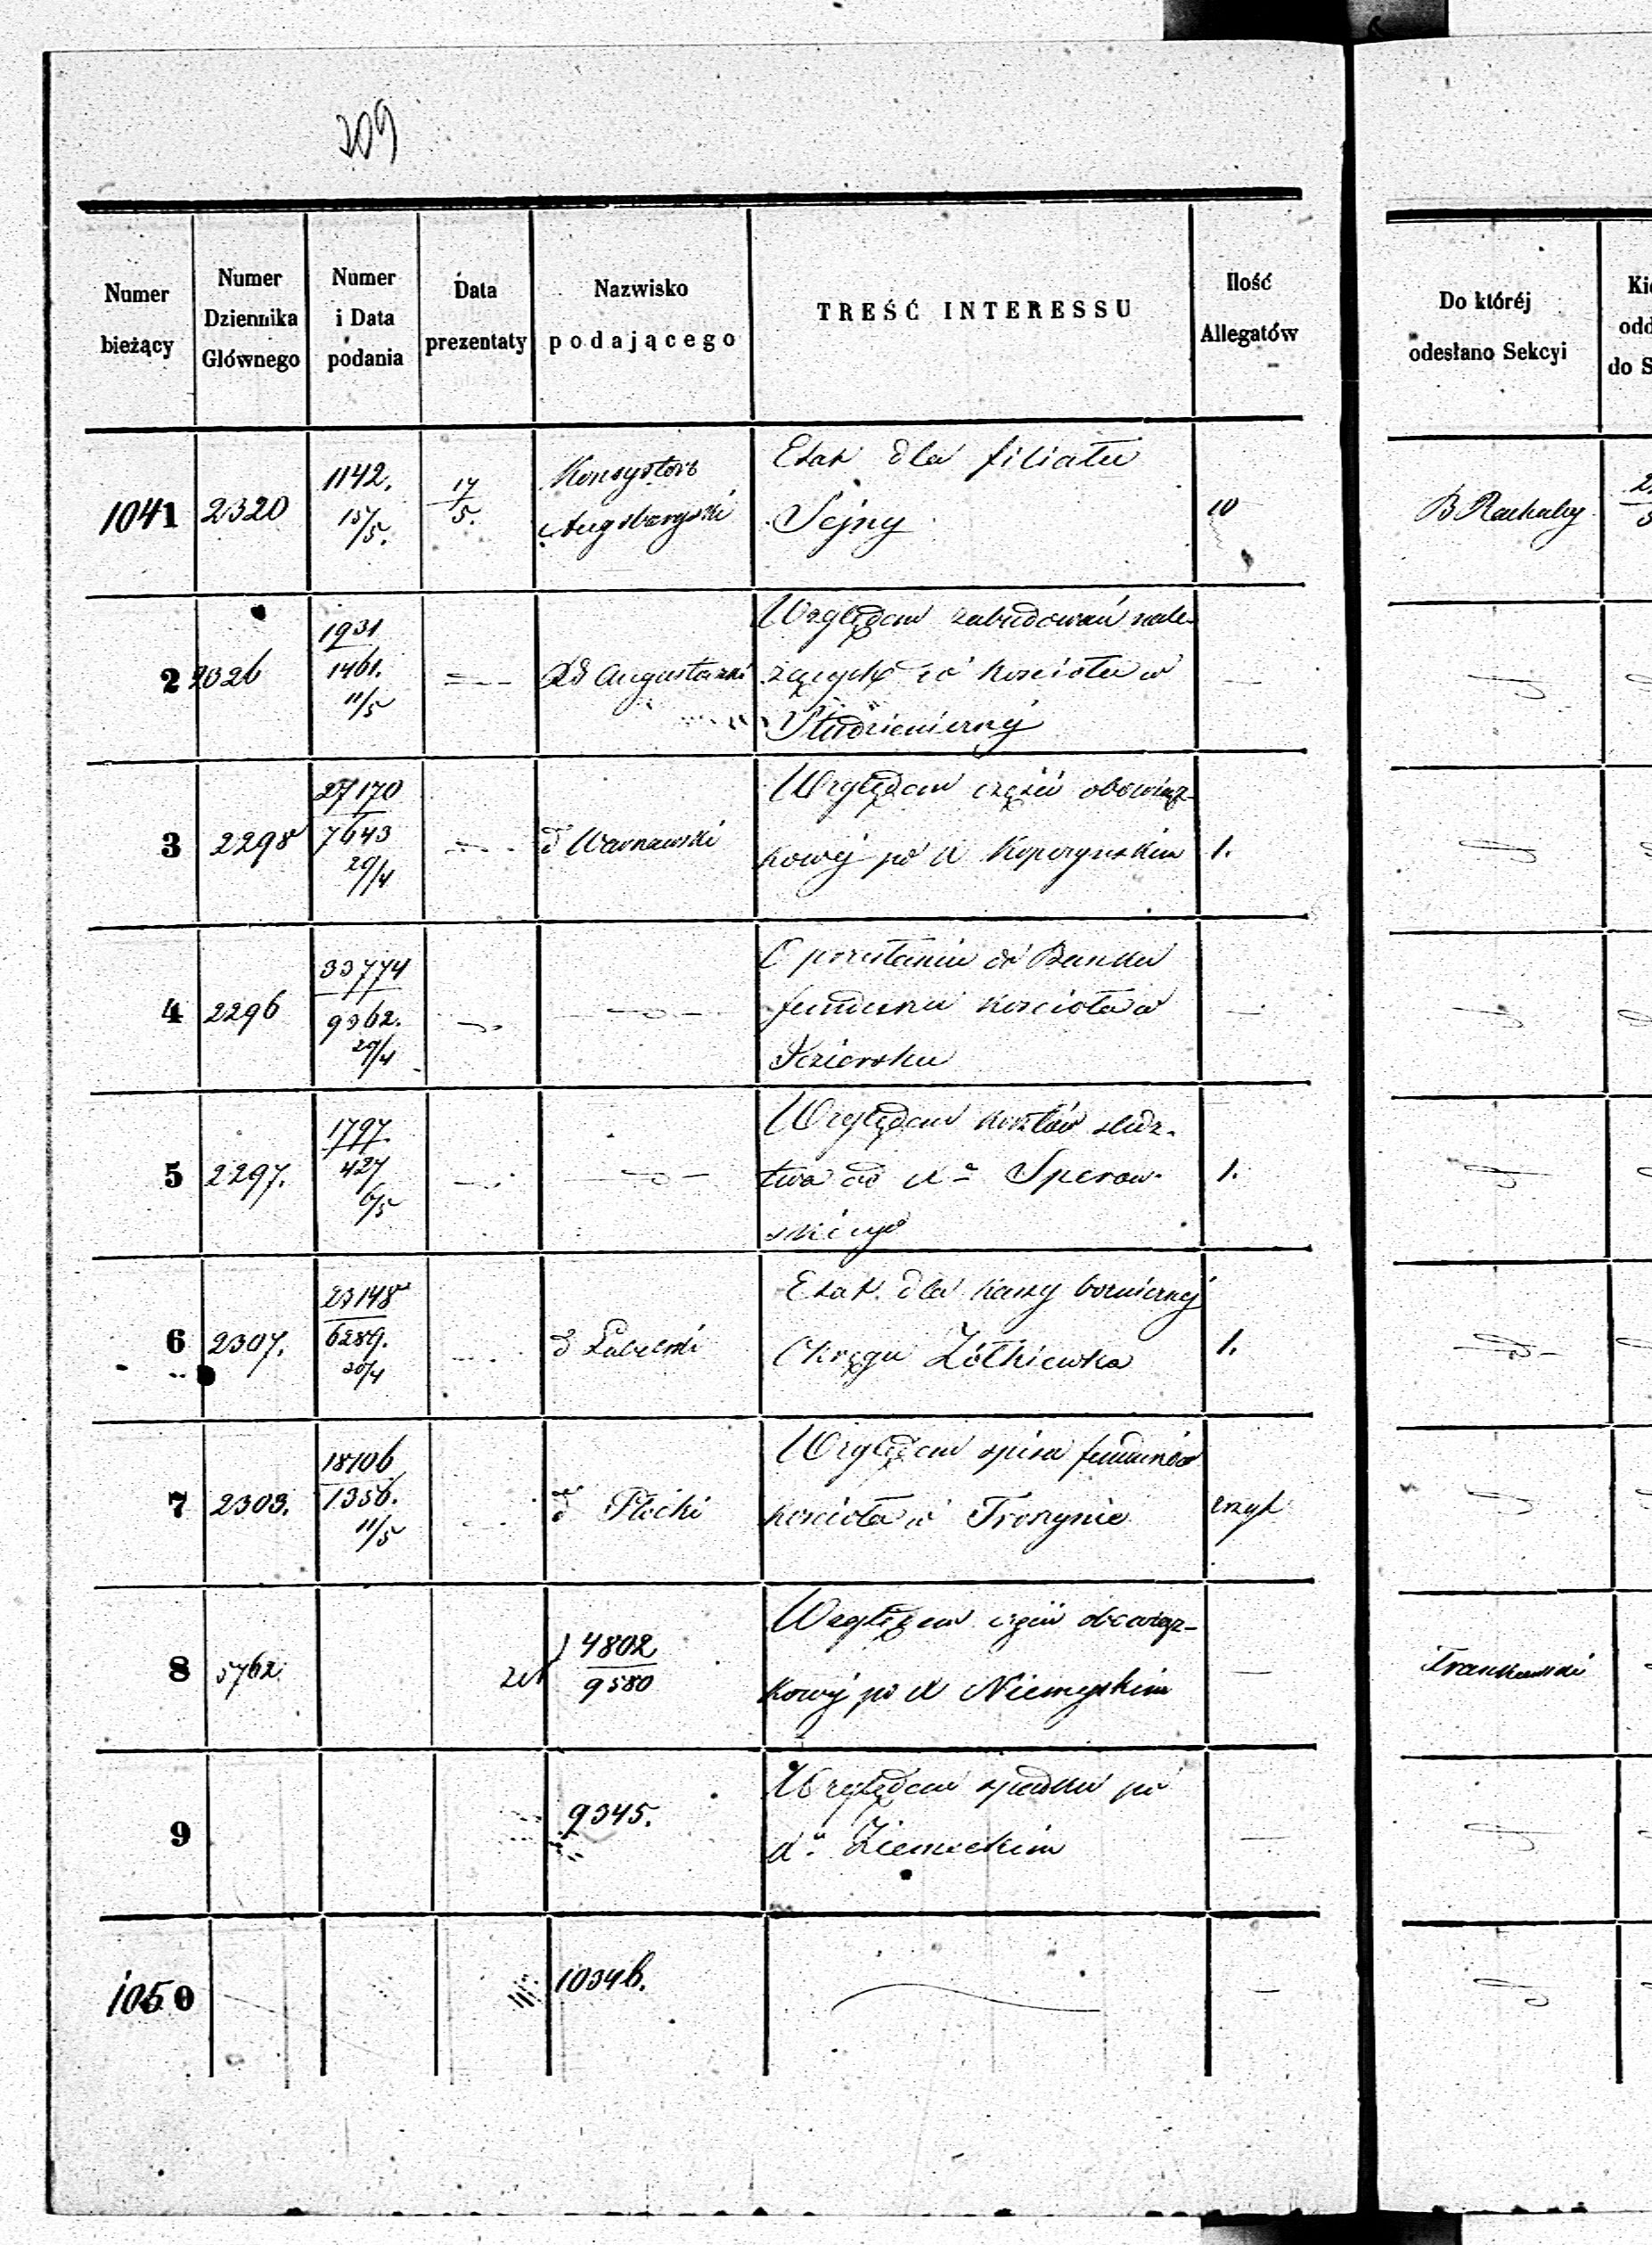 209
Numer bieżący
Numer Dziennika Głównego
Numer i Data podania
Data prezentaty
Nazwisko podającego
TREŚĆ INTERESSU
Ilość Allegatów
Do któréj odesłano Sekcyi
1041 2320 1142. 15/5. 17/5. Konsystorz Augsburgski
Etat dla filiału
Sejny
10
2 2326 1931 1461. 11/5 Augustowski
Względem zabudowań nale-
żących do kościoła w
Studzienicznéj
3 2298 27170 7643 29/4 d Warszawski
Względem części obowiąz-
kowéj po X Kopczyńskim
1.
4 2296 33774 9362. 29/4
O przesłaniu do Banku
funduszu kościoła w
Jeziorsku
5 2297. 1797 427 6/5
Względem kosztów śledz-
twa od Xa Sperow-
skiego
1.
6 2307. 23148 6289. 30/4 d Lubelski
Etat dla kassy boźniczéj
Okręgu Żółkiewka
1.
7 2303. 18106 1356. 11/5 d Płocki
Względem spisu funduszów
kościoła w Troszynie
8 5762 4802 9580
Względem części obowiąz-
kowéj po X Niemyskim
9 9345.
Względem spadku po
Xu Ziemeckim
1050 10346.